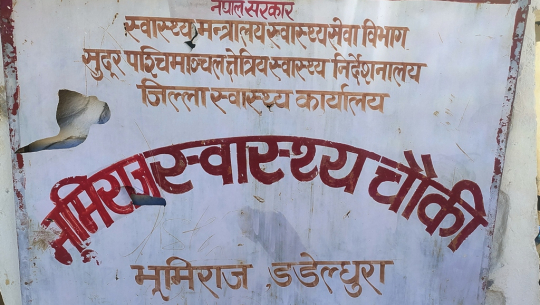 नेपाल सरकार
स्वास्थ्य मन्त्रालय स्वास्थ्य सेवा विभाग
सुदूर पश्चिमाञ्चल क्षेत्रिय स्वास्थ्य निर्देशनालय
जिल्ला स्वास्थ्य कार्यालय
भूमिराज स्वास्थ्य चौकी
भूमिराज डडेल्धुरा